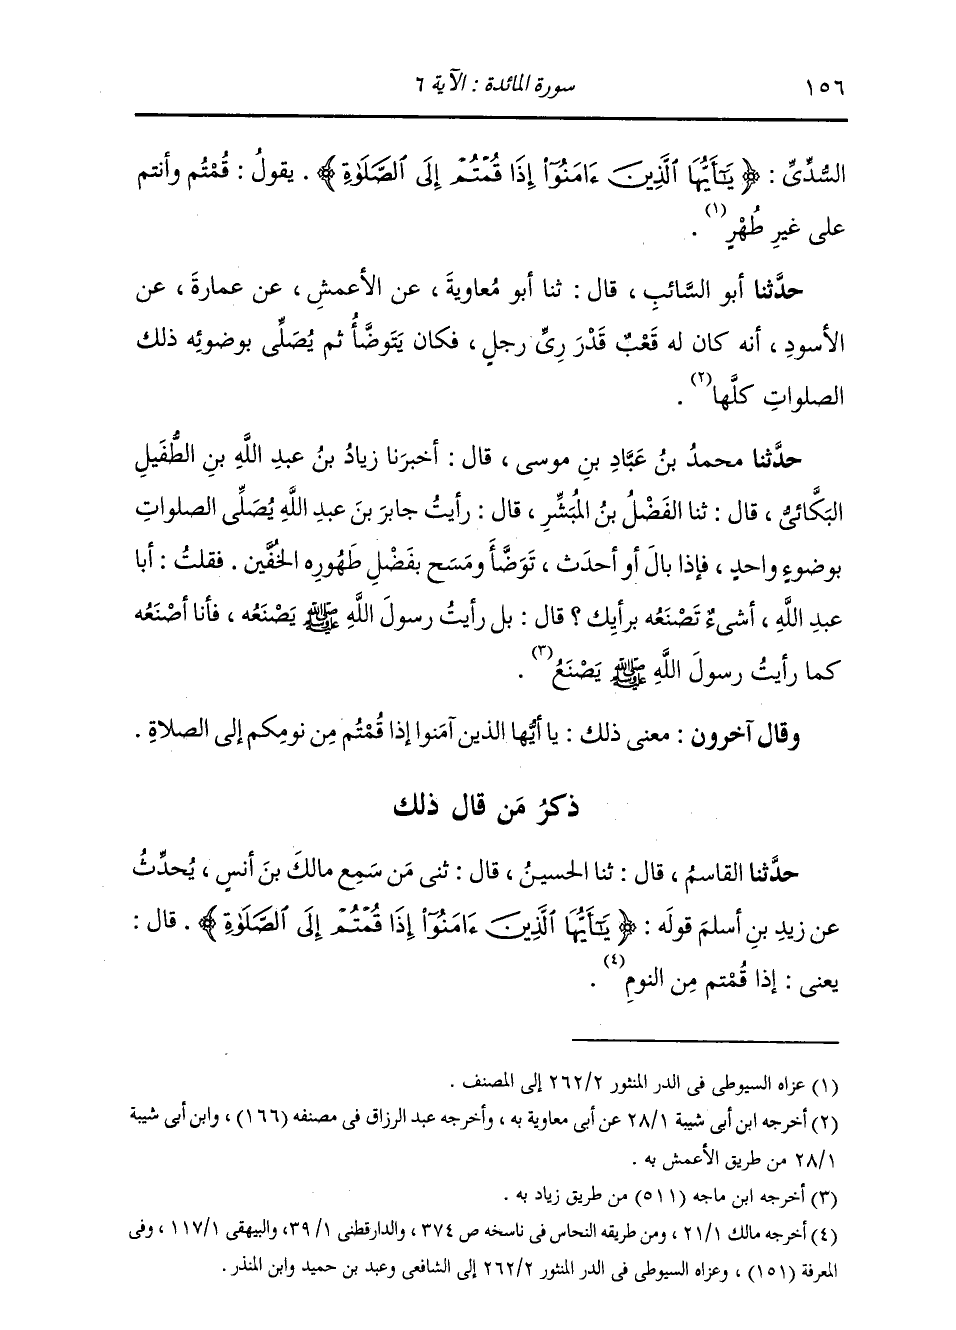 ١٥٦ سورة المائدة : الآية ٦
السُّدِّىِّ : ﴿ يَٰٓأَيُّهَا ٱلَّذِينَ ءَامَنُوٓا۟ إِذَا قُمْتُمْ إِلَى ٱلصَّلَوٰةِ ﴾ . يقولُ : قُمْتُم وأنتم
على غيرِ طُهْرٍ(١) .
حدَّثنا أبو السَّائبِ ، قال : ثنا أبو مُعاويةَ ، عن الأعمشِ ، عن عمارةَ ، عن
الأسودِ ، أنه كان له قَعْبٌ قَدْرَ رِىِّ رجلٍ ، فكان يَتَوضَّأُ ثم يُصَلِّى بوضوئِه ذلك
الصلواتِ كلَّها(٢) .
حدَّثنا محمدُ بنُ عَبَّادِ بنِ موسى ، قال : أخبرَنا زيادُ بنُ عبدِ اللَّهِ بنِ الطُّفَيلِ
البَكَّائىُّ ، قال : ثنا الفَضْلُ بنُ المُبَشِّرِ ، قال : رأيتُ جابرَ بنَ عبدِ اللَّهِ يُصَلِّى الصلواتِ
بوضوءٍ واحدٍ ، فإذا بالَ أو أحدَث ، تَوَضَّأَ ومَسَح بفَضْلِ طَهُورِه الخُفَّين . فقلتُ : أبا
عبدِ اللَّهِ ، أشىءٌ تَصْنَعُه برأيِك ؟ قال : بل رأيتُ رسولَ اللَّهِ ﷺ يَصْنَعُه ، فأنا أصْنَعُه
كما رأيتُ رسولَ اللَّهِ ﷺ يَصْنَعُ(٣) .
وقال آخرون : معنى ذلك : يا أيُّها الذين آمَنوا إذا قُمْتُم مِن نومِكم إلى الصلاةِ .
ذكرُ مَن قال ذلك
حدَّثنا القاسمُ ، قال : ثنا الحسينُ ، قال : ثنى مَن سَمِع مالكَ بنَ أنسٍ ، يُحدِّثُ
عن زيدِ بنِ أسلمَ قولَه : ﴿ يَٰٓأَيُّهَا ٱلَّذِينَ ءَامَنُوٓا۟ إِذَا قُمْتُمْ إِلَى ٱلصَّلَوٰةِ ﴾ . قال :
يعنى : إذا قُمْتم مِن النومِ(٤) .
(١) عزاه السيوطى فى الدر المنثور ٢٦٢/٢ إلى المصنف .
(٢) أخرجه ابن أبى شيبة ٢٨/١ عن أبى معاوية به ، وأخرجه عبد الرزاق فى مصنفه (١٦٦) ، وابن أبى شيبة
٢٨/١ من طريق الأعمش به .
(٣) أخرجه ابن ماجه (٥١١) من طريق زياد به .
(٤) أخرجه مالك ٢١/١ ، ومن طريقه النحاس فى ناسخه ص ٣٧٤ ، والدارقطنى ٣٩/١، والبيهقى ١١٧/١ ، وفى
المعرفة (١٥١) ، وعزاه السيوطى فى الدر المنثور ٢٦٢/٢ إلى الشافعى وعبد بن حميد وابن المنذر .